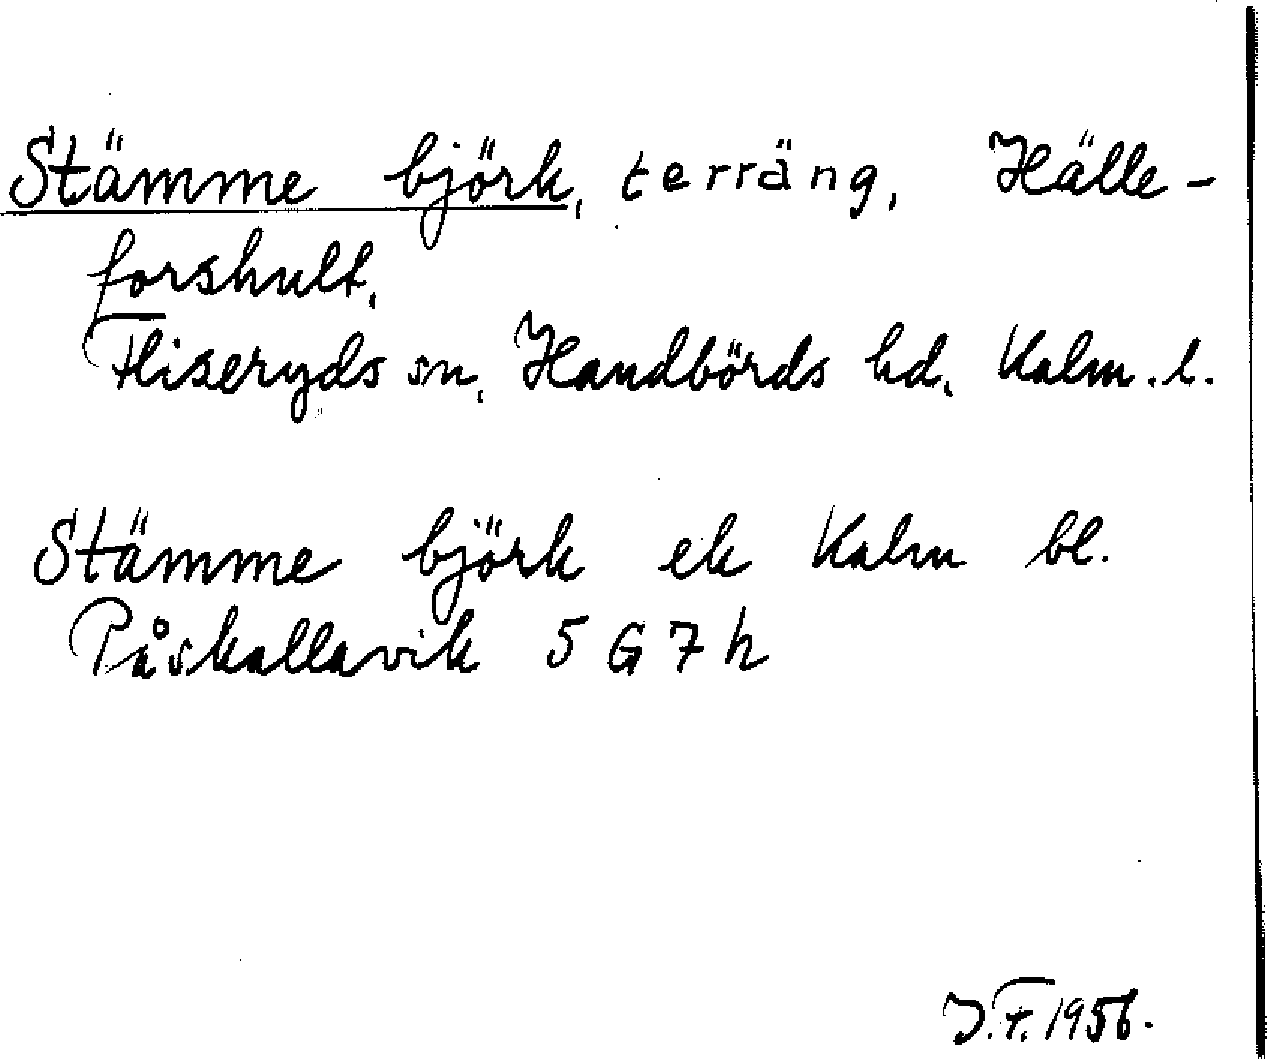 Stämme björk, terräng, Hälle-
forshult,
Fliseryds sn, Handbörds hd, Kalm. l.
Stämme björk ek Kalm bl.
Påskallavik 5 G 7 h
J.F. 1956.